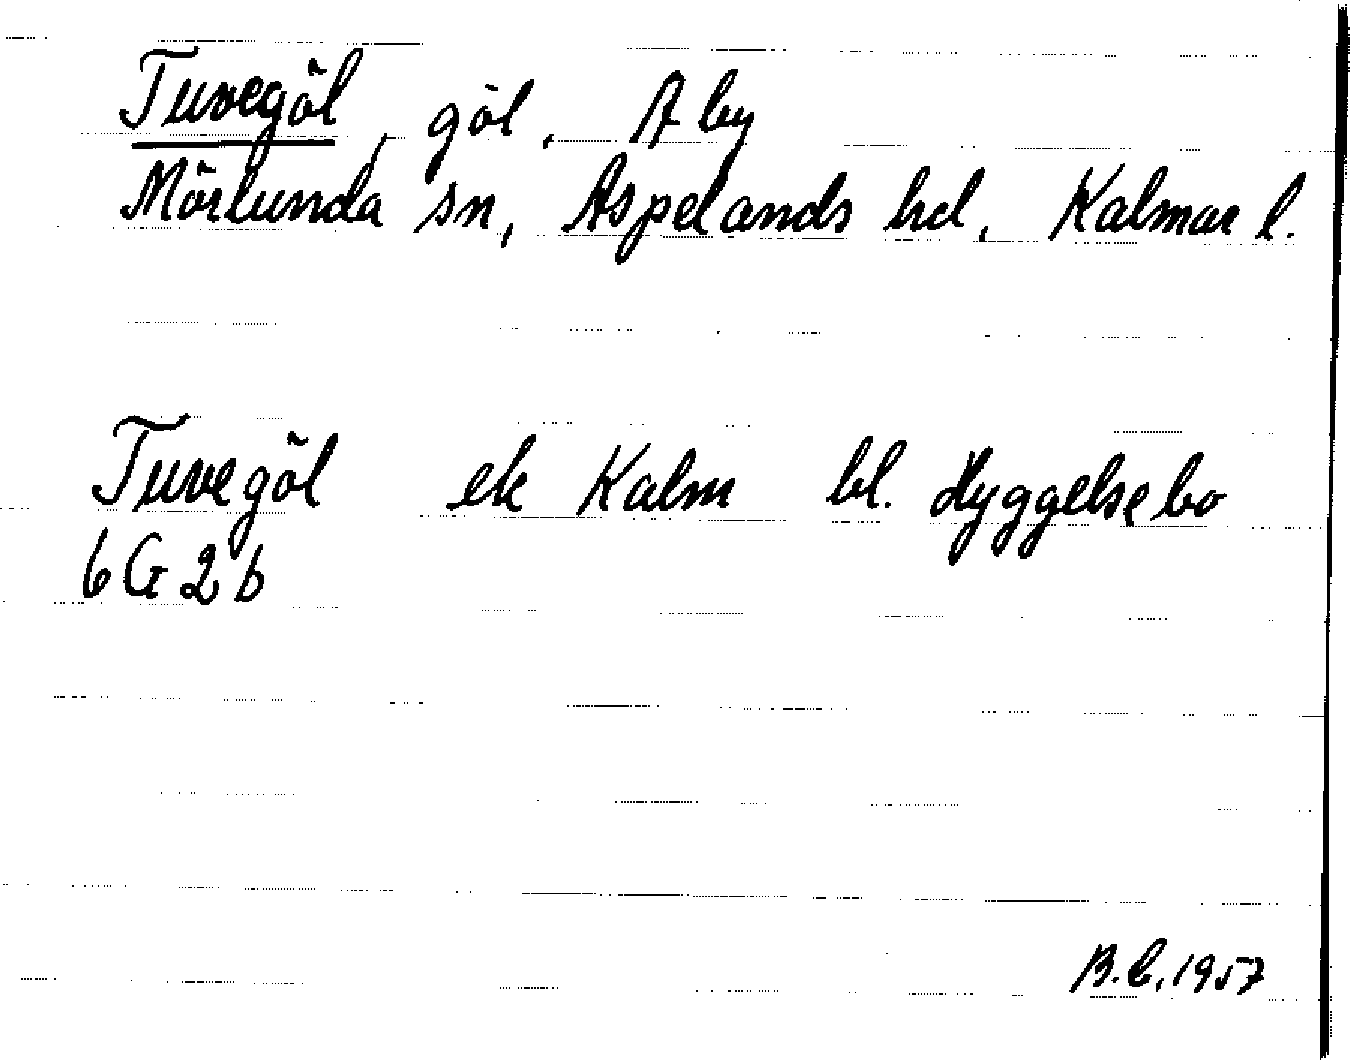 Tuvegöl, göl, A by
Mörlunda sn, Aspelands hd, Kalmar l.
Tuvegöl ek Kalm bl. Hyggelsebo
6G2b
B.C. 1957